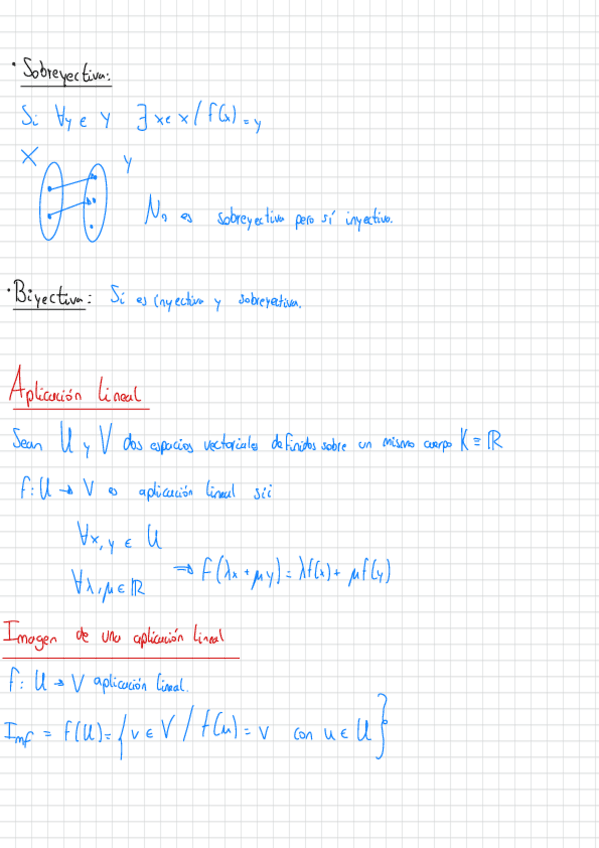 · Sobreyectiva:
Si ∀y ∈ Y ∃ x ∈ x / f(x) = y
X Y
No es sobreyectiva pero sí inyectiva.
· Biyectiva: Si es inyectiva y sobreyectiva.
Aplicación lineal
Sean U y V dos espacios vectoriales definidos sobre un mismo cuerpo K ≡ ℝ
f: U → V es aplicación lineal sii
∀x, y ∈ U
∀λ, μ ∈ ℝ ⇒ f(λx + μy) = λf(x) + μf(y)
Imagen de una aplicación lineal
f: U → V aplicación lineal.
Imf = f(U) = { v ∈ V / f(u) = v con u ∈ U }